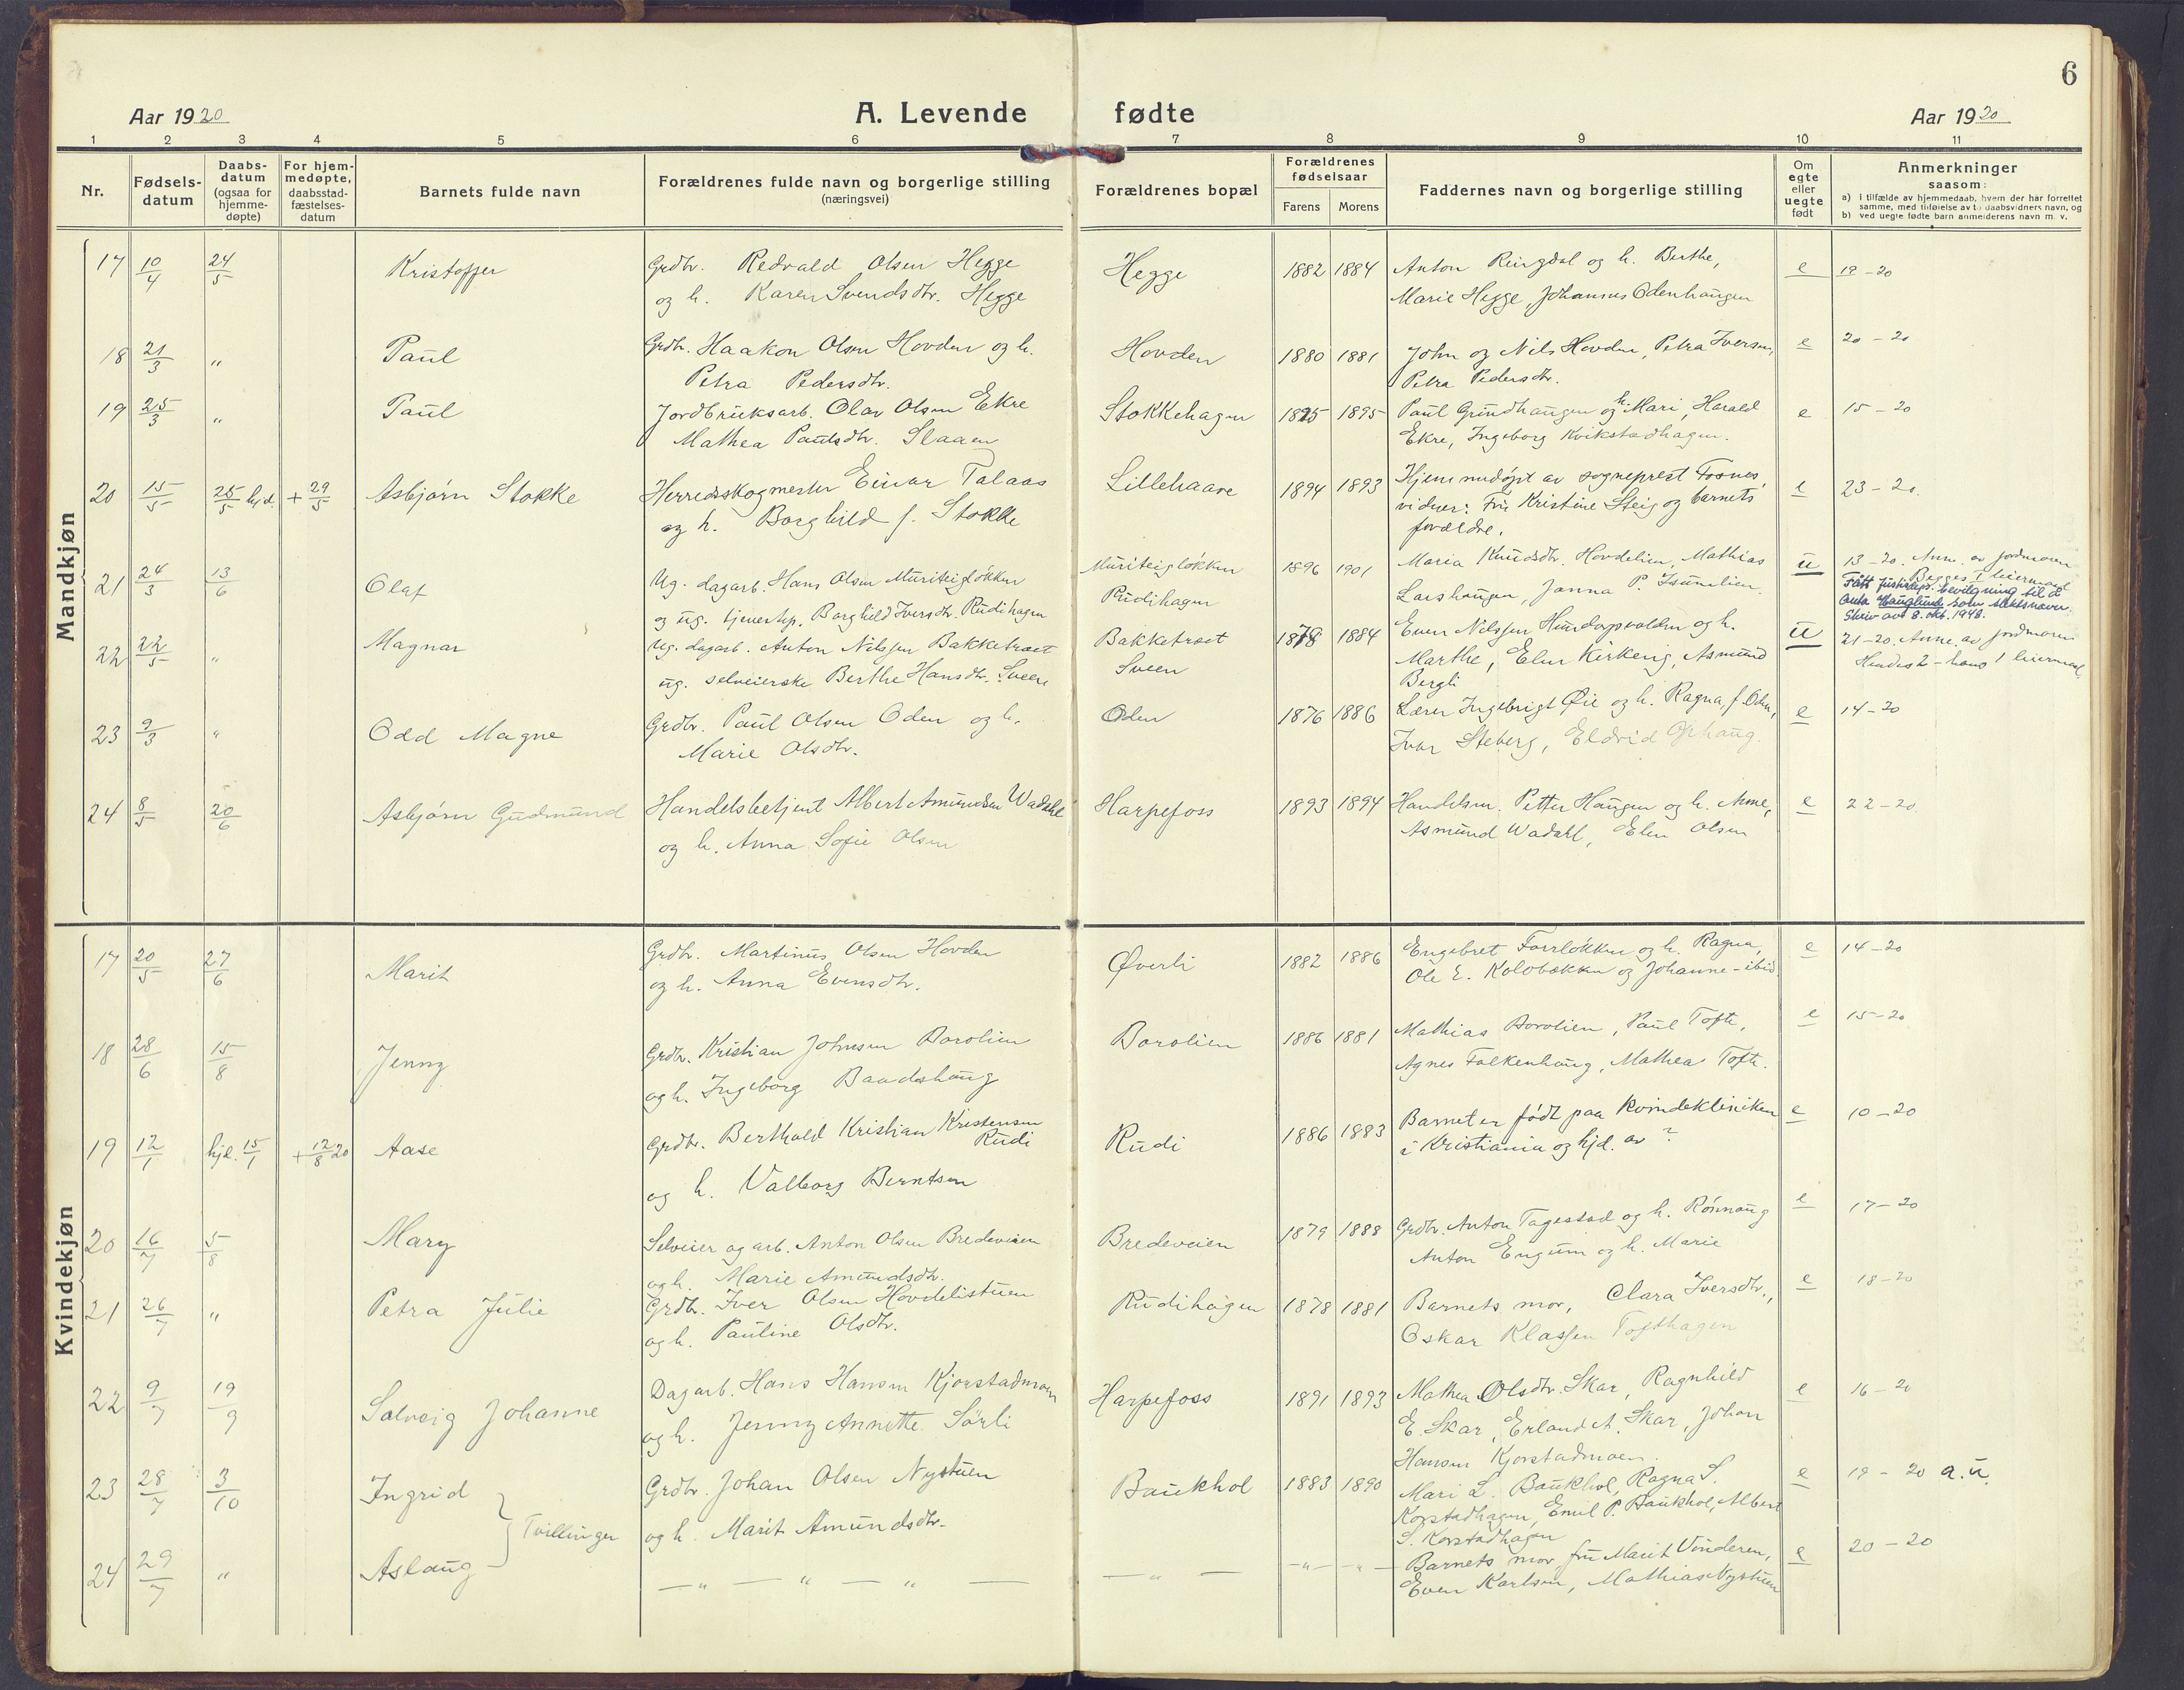 6
Aar 1920
A. Levende fødte
Aar 1920
1 2 3 4 5 6 7 8 9 10 11
Nr.
Fødsels-
datum
Daabs-
datum
(ogsaa for
hjemme-
døpte)
For hjem-
medøpte,
daabsstad-
fæstelses-
datum
Barnets fulde navn
Forældrenes fulde navn og borgerlige stilling
(næringsvei)
Forældrenes bopæl
Forældrenes
fødselsaar
Farens Morens
Faddernes navn og borgerlige stilling
Om
egte
eller
uegte
født
Anmerkninger
saasom:
a) i tilfælde av hjemmedaab, hvem der har forrettet
samme, med tilføielse av to daabsvidners navn, og
b) ved uegte fødte barn anmelderens navn m. v.
Mandkjøn
17 10/4 24/5 Kristoffer
Grdbr. Redvald Olsen Hegge
og h. Karen Svendsdtr. Hegge
Hegge 1882 1884
Anton Ringdal og h. Berthe,
Marie Hegge, Johannes Odenhaugen
e 19-20
18 21/3 " Paul
Grdbr. Haakon Olsen Hovden og h.
Petra Pedersdtr.
Hovden 1880 1881
John og Nils Hovden, Petra Iversen,
Petra Pedersdtr.
e 20-20
19 25/3 " Paul
Jordbruksarb. Olav Olsen Ekre
Mathea Paulsdtr. Slaaen
Stokkehagen 1895 1895
Paul Grundhaugen og h. Mari, Harald
Ekre, Ingeborg Kvikstadhagen.
e 15-20
20 15/5 25/5 hjd. + 29/5 Asbjørn Stokke
Herredsskogmester Einar Talaas
og h. Borghild f. Stokke
Lillehaave 1894 1893
Hjemmedøpt av sogneprest Fosnes,
vidner: Fru Kristine Steig og barnets
forældre.
e 23-20.
21 24/3 13/6 Olaf
Ug. dagarb. Hans Olsen Muriteigløkken
og ug. tjenestep. Borghild Iversdtr. Rudihagen
Muriteigløkken
Rudihagen
1896 1901
Maria Knudsdtr. Hovdelien, Mathias
Larshaugen, Janna P. Isumlien.
u 13-20. Anm. av jordmoren
Begges 1 leiermaal
Fått justisdep. bevilgning til å
anta Hauglund som slektsnavn.
Skriv avd 8. okt. 1948.
22 22/5 " Magnar
Ug. dagarb. Anton Nilssen Bakketraet
ug. selveierske Berthe Hansdtr. Sveen
Bakketraet
Sveen
1878 1884
Even Nilssen Hundorpvolden og h.
Marthe, Elen Kirkerig, Asmund
Bergli
u 21-20. Anm. av jordmoren
Hendes 2 - hans 1 leiermaal.
23 9/3 " Odd Magne
Grdbr. Paul Olsen Oden og h.
Marie Olsdtr.
Oden 1876 1886
Lærer Ingebrigt Øie og h. Ragna, f. Oden,
Ivar Steberg, Eldrid Ophaug.
e 14-20
24 8/5 20/6 Asbjørn Gudmund
Handelsbetjent Albert Amundsen Wadahl
og h. Anna Sofie Olsen
Harpefoss 1893 1894
Handelsm. Petter Haugen og h. Anne,
Asmund Wadahl, Elen Olsen
e 22-20
Kvindekjøn
17 20/5 27/6 Marit
Grdbr. Martinus Olsen Hovden
og h. Anna Evensdtr.
Øverli 1882 1886
Engebret Forrløkken og h. Ragna,
Ole E. Kolobækken og Johanne - ibid.
e 14-20
18 28/6 15/8 Jenny
Grdbr. Kristian Johnsen Borolien
og h. Ingeborg Baadshaug
Borolien 1886 1881
Mathias Borolien, Paul Tofte,
Agnes Falkenhaug, Mathea Tofte.
e 15-20
19 12/1 hjd. 15/1 + 12/8 20 Aase
Grdbr. Berthold Kristian Kristensen
Rudi
og h. Valborg Berntsen
Rudi 1886 1883
Barnet er født paa kvindekliniken
i Kristiania og hjd. av ?
e 10-20
20 16/7 5/8 Mary
Selveier og arb. Anton Olsen Bredeveien
og h. Marie Amundsdtr.
Bredeveien 1879 1888
Grdbr. Anton Tagestad og h. Rønnaug
Anton Engum og h. Marie
e 17-20
21 26/7 " Petra Julie
Grdbr. Iver Olsen Hovdelistuen
og h. Pauline Olsdtr.
Rudihagen 1878 1881
Barnets mor, Clara Iversdtr.,
Oskar Klassen Tofthagen
e 18-20
22 9/7 19/9 Solveig Johanne
Dagarb. Hans Hansen Kjorstadmoen
og h. Jenny Annette Sørli
Harpefoss 1891 1893
Mathea Olsdtr. Skar, Ragnhild
E. Skar, Erland A. Skar, Johan
Hansen Kjorstadmoen.
e 16-20
23 28/7 3/10 Ingrid
Tvillinger
Grdbr. Johan Olsen Nystuen
og h. Marit Amundsdtr.
Baukhol 1883 1890
Mari L. Baukhol, Ragna S.
Korstadhagen, Emil P. Baukhol, Albert
S. Korstadhagen
e 19-20 a.u.
24 29/7 " Aslaug
— " — " — " —
— " — — " — — " —
Barnets mor, fru Marit Vinderen,
Even Karlsen, Mathias Nystuen
e 20-20